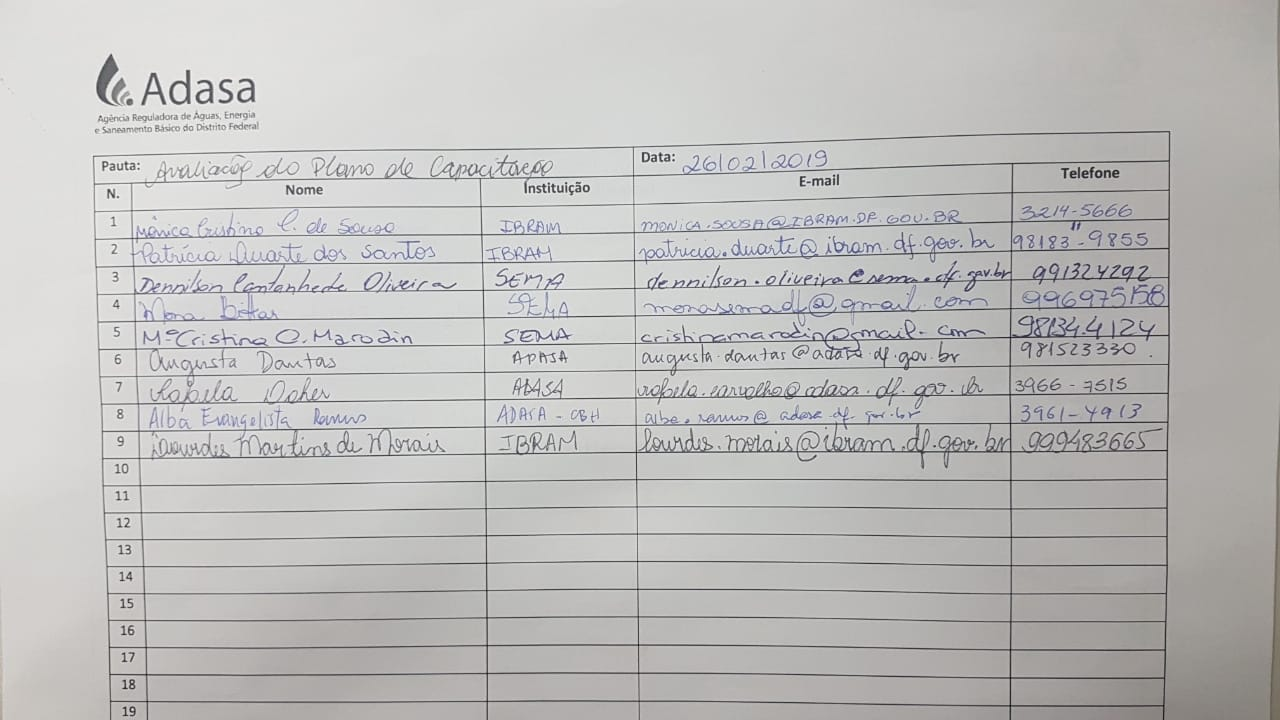 Adasa
Agência Reguladora de Águas, Energia
e Saneamento Básico do Distrito Federal
Pauta: Avaliação do Plano de Capacitação Data: 26/02/2019
N. Nome Instituição E-mail Telefone
1 Mônica Cristina C. de Sousa IBRAM MONICA.SOUSA@IBRAM.DF.GOV.BR 3214-5666
2 Patrícia Duarte dos Santos IBRAM patricia.duarte@ibram.df.gov.br 98183-9855
3 Dennilson Cantanhede Oliveira SEMA dennilson.oliveira@sema.df.gov.br 991324292
4 Mona Bittar SEMA monasemadf@gmail.com 996975158
5 Mª Cristina O. Marodin SEMA cristinamarodin@gmail.com 98134.4124
6 Augusta Dantas ADASA augusta.dantas@adasa.df.gov.br 981523330.
7 Rafaela ADASA rafaela.carvalho@adasa.df.gov.br 3966-7515
8 Alba Evangelista Ramos ADASA-CBH alba.ramos@adasa.df.gov.br 3961-4913
9 Lourdes Martins de Morais IBRAM lourdes.morais@ibram.df.gov.br 999483665
10
11
12
13
14
15
16
17
18
19